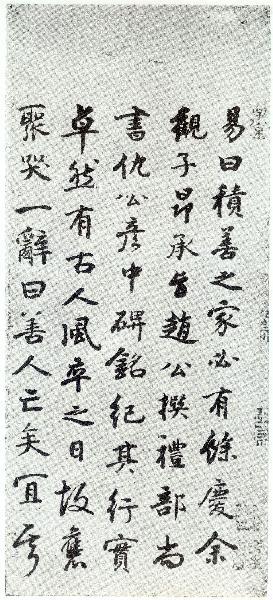 易曰積善之家必有餘慶余
觀子昂承旨趙公撰禮部尚
書仇公彥中碑銘紀其行實
卓然有古人風卒之日故舊
聚哭一辭曰善人亡矣宜乎